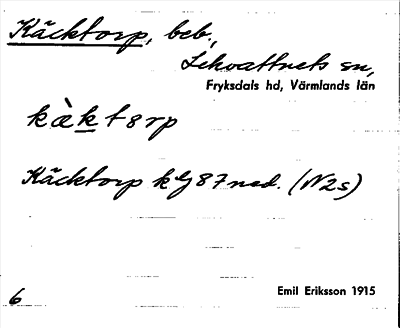 Käcktorp, beb.,
Lekvattnets sn,
Fryksdals hd, Värmlands län
kàktɵrp
Käcktorp k lj 87 ned. (N2s)
6
Emil Eriksson 1915